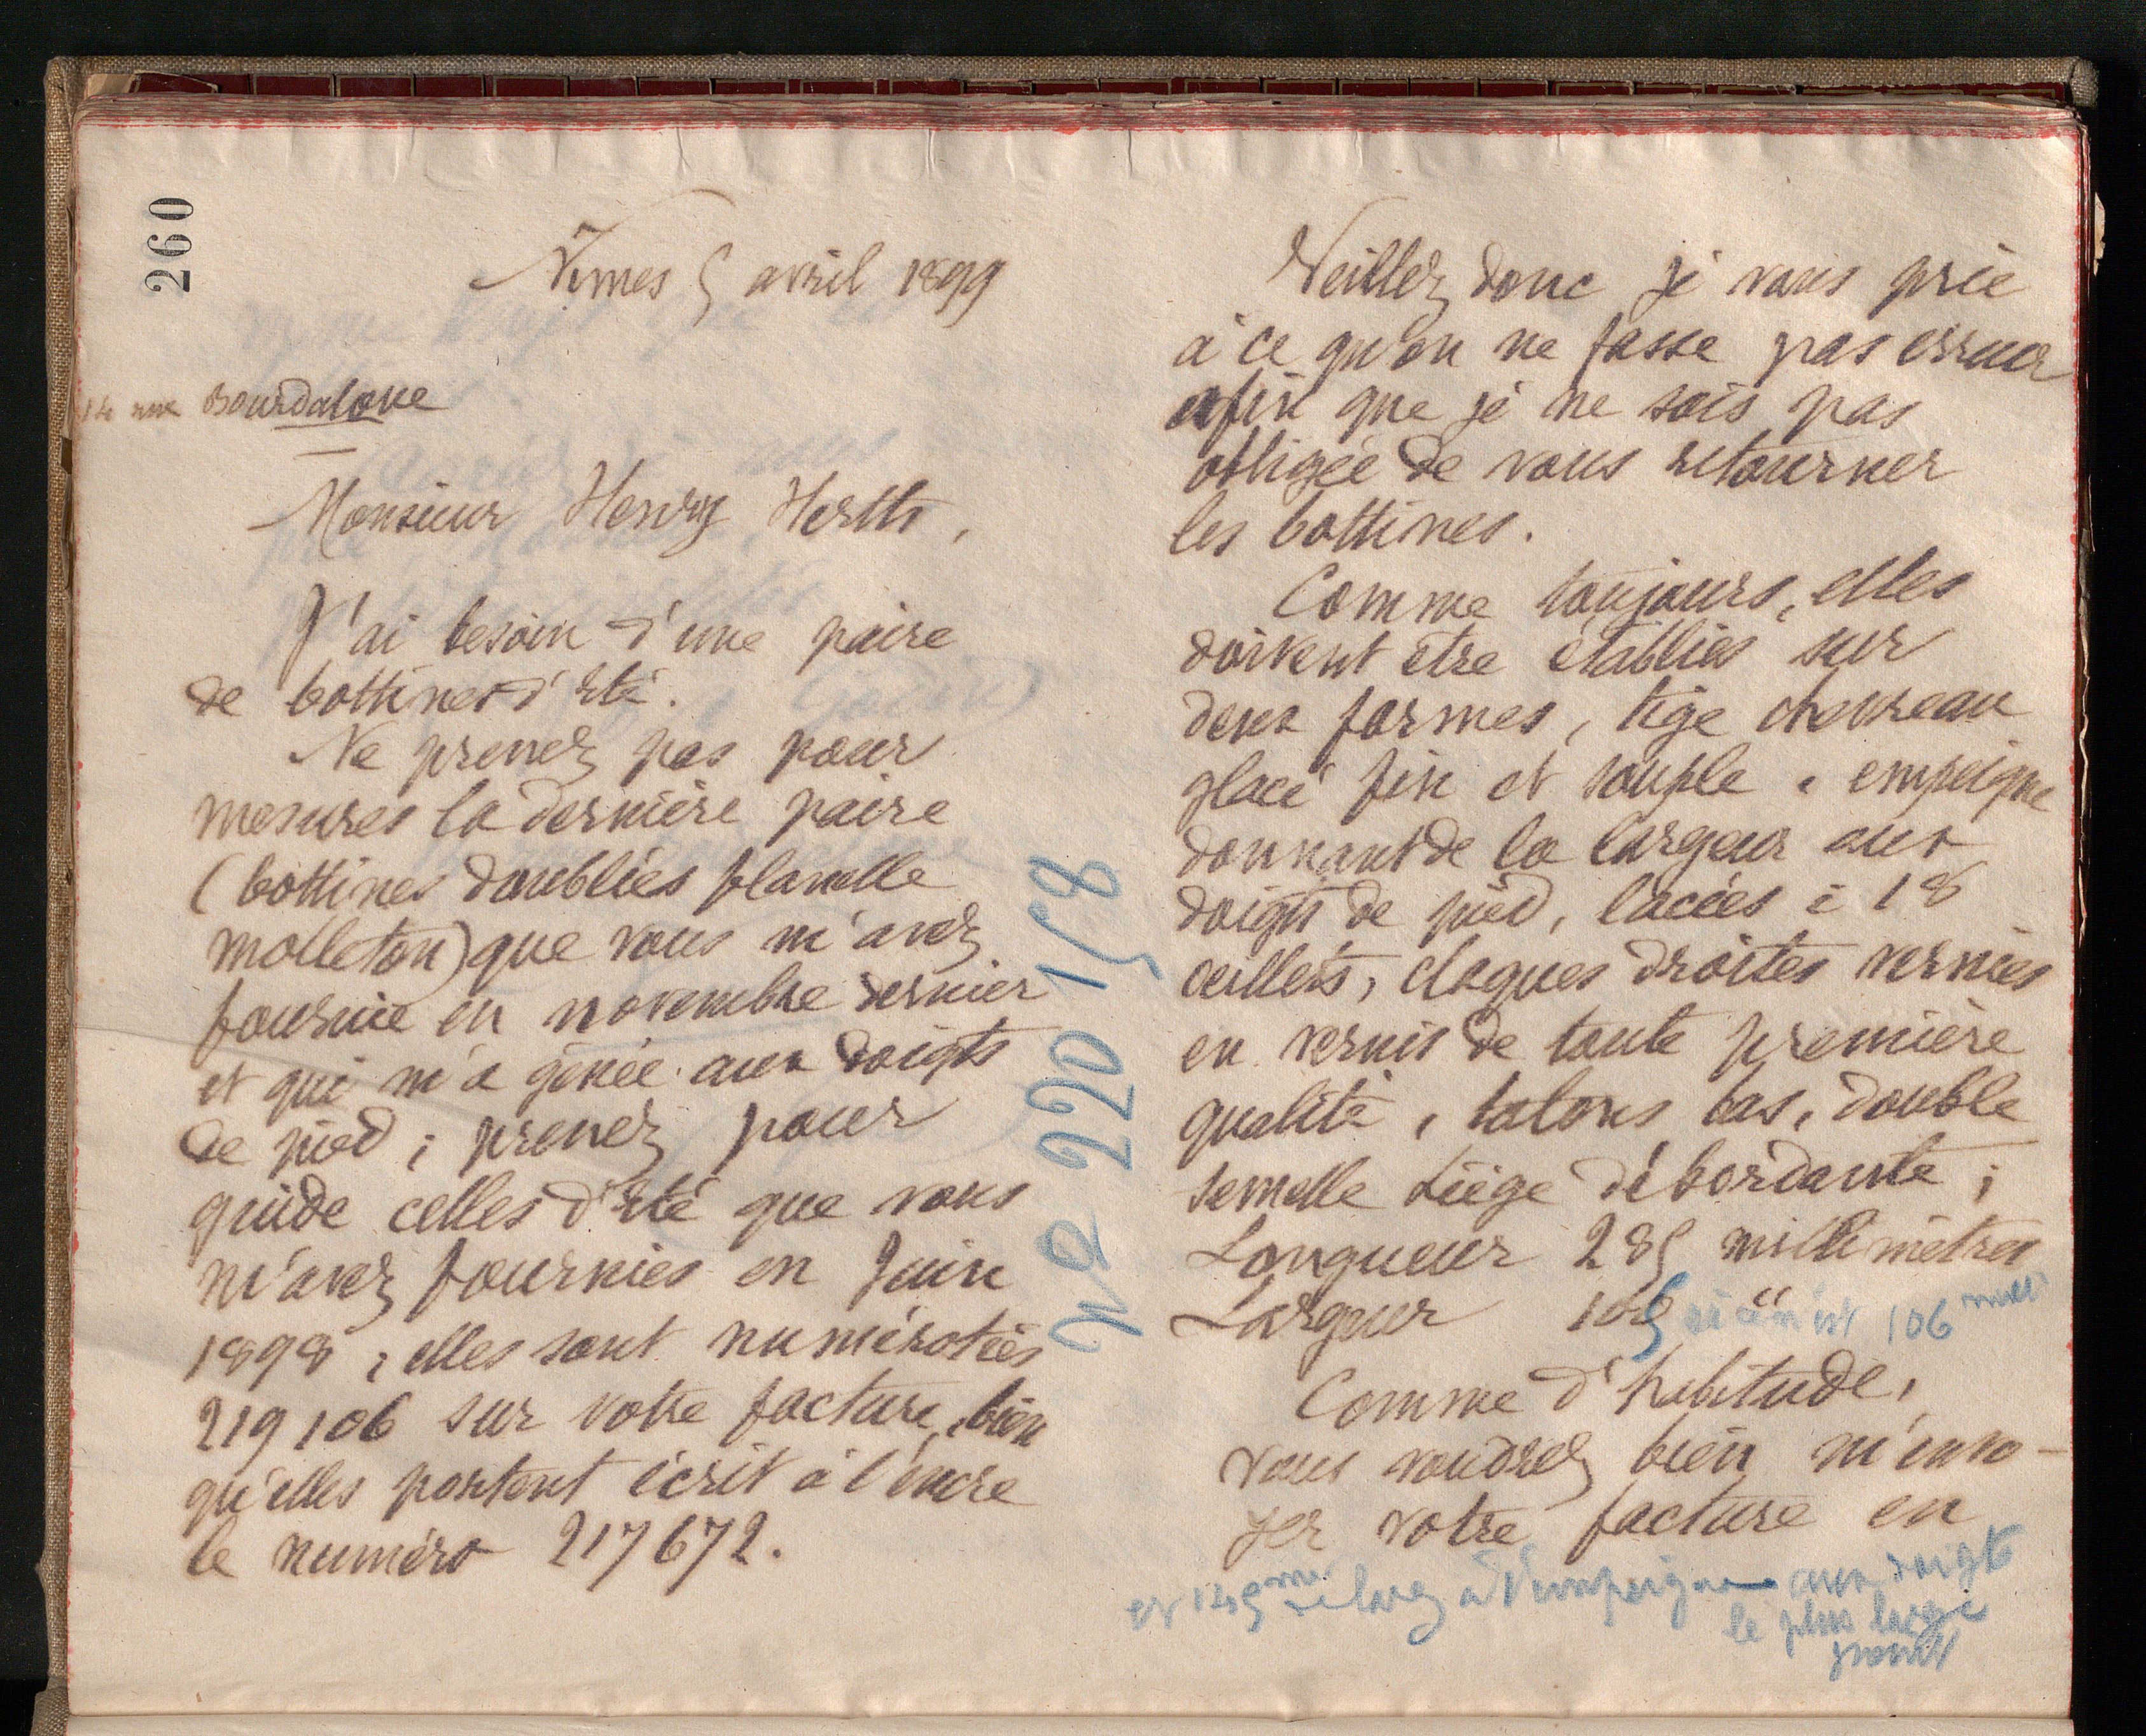 260
Nîmes 5 avril 1899
14 rue Bourdaloue
Monsieur Henry Herth,
J'ai besoin d'une paire
de bottines d'été.
Ne prenez pas pour
mesures la dernière paire
(bottines doublées flanelle
molleton) que vous m'avez
fournie en novembre dernier
et qui m'a gênée aux doigts
de pied ; prenez pour
guide celles d'été que vous
m'avez fournies en Juin
1898 ; elles sont numérotées
219106 sur votre facture, bien
qu'elles portent écrit à l'encre
le numéro 217672.
no 220 158
Veillez donc je vous prie
à ce qu'on ne fasse pas erreur
afin que je ne sois pas
obligée de vous retourner
les bottines.
Comme toujours, elles
doivent être établies sur
deux formes, tige chevreau
glacé fin et souple, empeigne
donnant de la largeur aux
doigts de pied, lacées à 18
oeillets, claques droites vernies
en vernis de toute première
qualité, talons bas, double
semelle Liège débordante ;
Longueur 285 millimètres
Largeur 105 " 106 mill
Comme d'habitude,
vous voudrez bien m'envo-
yer votre facture en
et mm de large à l'empeigne aux doigts
le plus large
point